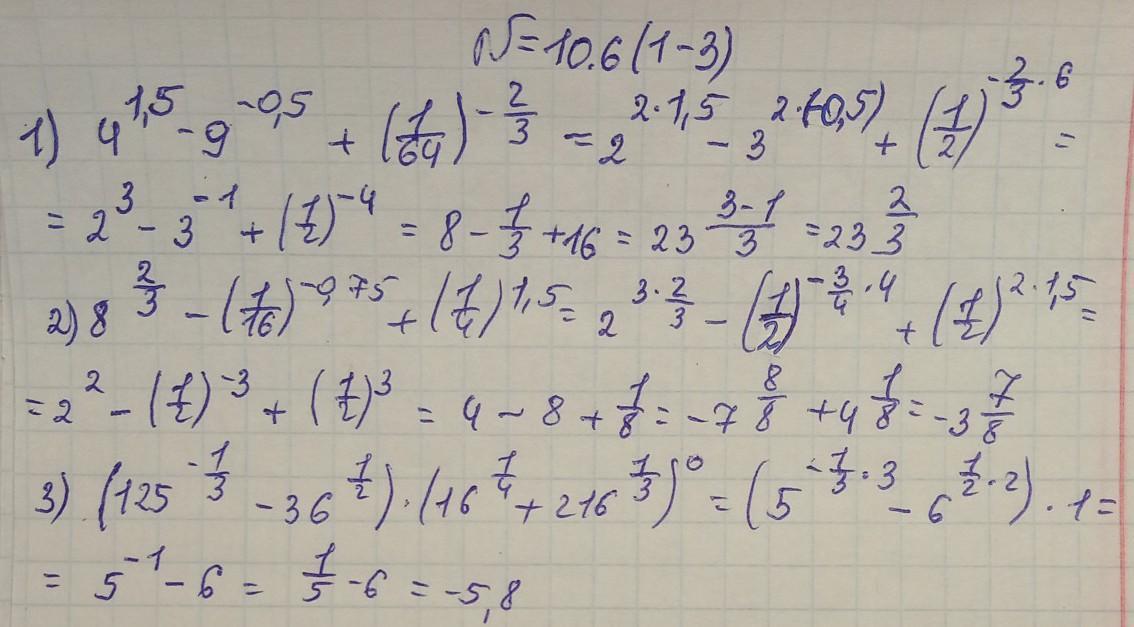 № = 10.6 (1-3)
1) 4^1,5 - 9^-0,5 + (1/64)^-2/3 = 2^2·1,5 - 3^2·(-0,5) + (1/2)^-2/3·6 =
= 2^3 - 3^-1 + (1/2)^-4 = 8 - 1/3 + 16 = 23 3-1/3 = 23 2/3
2) 8^2/3 - (1/16)^-0,75 + (1/4)^1,5 = 2^3·2/3 - (1/2)^-3/4·4 + (1/2)^2·1,5 =
= 2^2 - (1/2)^-3 + (1/2)^3 = 4 - 8 + 1/8 = -7 8/8 + 4 1/8 = -3 7/8
3) (125^-1/3 - 36^1/2)·(16^1/4 + 216^1/3)^0 = (5^-1/3·3 - 6^1/2·2)·1 =
= 5^-1 - 6 = 1/5 - 6 = -5,8